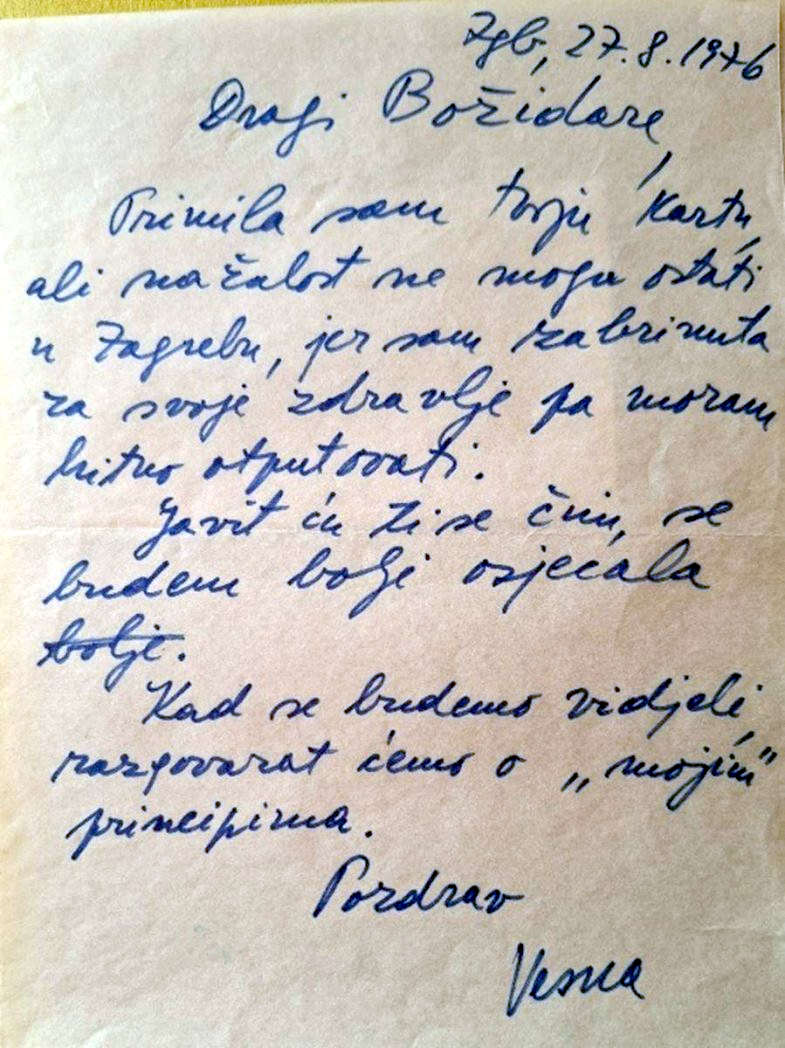 Zgb, 27.8.1976
Dragi Božidare,
Primila sam tvoju kartu,
ali nažalost ne mogu ostati
u Zagrebu, jer sam zabrinuta
za svoje zdravlje pa moram
hitno otputovati.
Javit ću ti se čim, se
budem bolje osjećala
bolje.
Kad se budemo vidjeli,
razgovarat ćemo o „mojim"
principima.
Pozdrav
Vesna